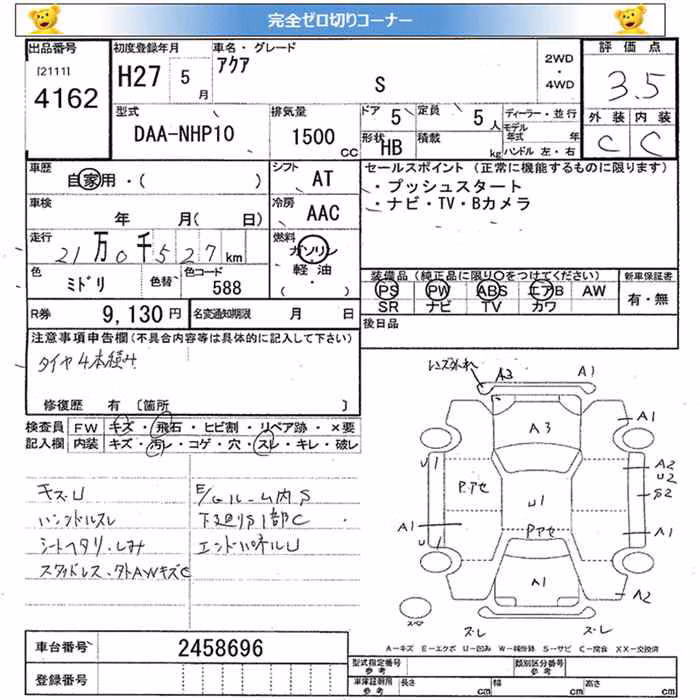 完全ゼロ切りコーナー
出品番号 [2111] 4162
初度登録年月 H27 5月
車名・グレード アクア S
2WD・4WD
評価点 3.5
外装 C 内装 C
型式 DAA-NHP10
排気量 1500 CC
ドア 5 定員 5人
形状 HB 積載 kg
ディーラー・並行
モデル年式 年
ハンドル 左・右
車歴 自家用・( )
シフト AT
車検 年 月( 日)
冷房 AAC
走行 21万0千527km
燃料 ガソリン 軽油 ( )
色 ミドリ 色替 色コード 588
セールスポイント (正常に機能するものに限ります)
・プッシュスタート
・ナビ・TV・Bカメラ
装備品 (純正品に限り○をつけてください) 新車保証書
PS PW ABS エアB AW 有・無
SR ナビ TV カワ
R券 9,130円 名変通知期限 月 日
後日品
注意事項申告欄(不具合内容等は具体的に記入して下さい)
タイヤ4本積み
修復歴 有 [箇所 ]
検査員 FW キズ・飛石・ヒビ割・リペア跡・×要
記入欄 内装 キズ・汚レ・コゲ・穴・スレ・キレ・破レ
キズU E/Gルーム内S
ハンドルスレ 下廻りS1部C
シートヘタリ・シミ エンドパネルU
スタッドレス・クトAWキズC
レンズワレ A3 A1
A3 A1
U1 P.アセ U1 A2 U2
S2
A1 U1 P.アセ A1
A1 A2
ズレ ズレ
A-キズ E-エクボ U-凹み W-補修跡 S-サビ C-腐食 XX-交換済
車台番号 2458696
登録番号
型式指定番号 参考 類別区分番号 参考
車庫証明用 参考 長さ cm 幅 cm 高さ cm